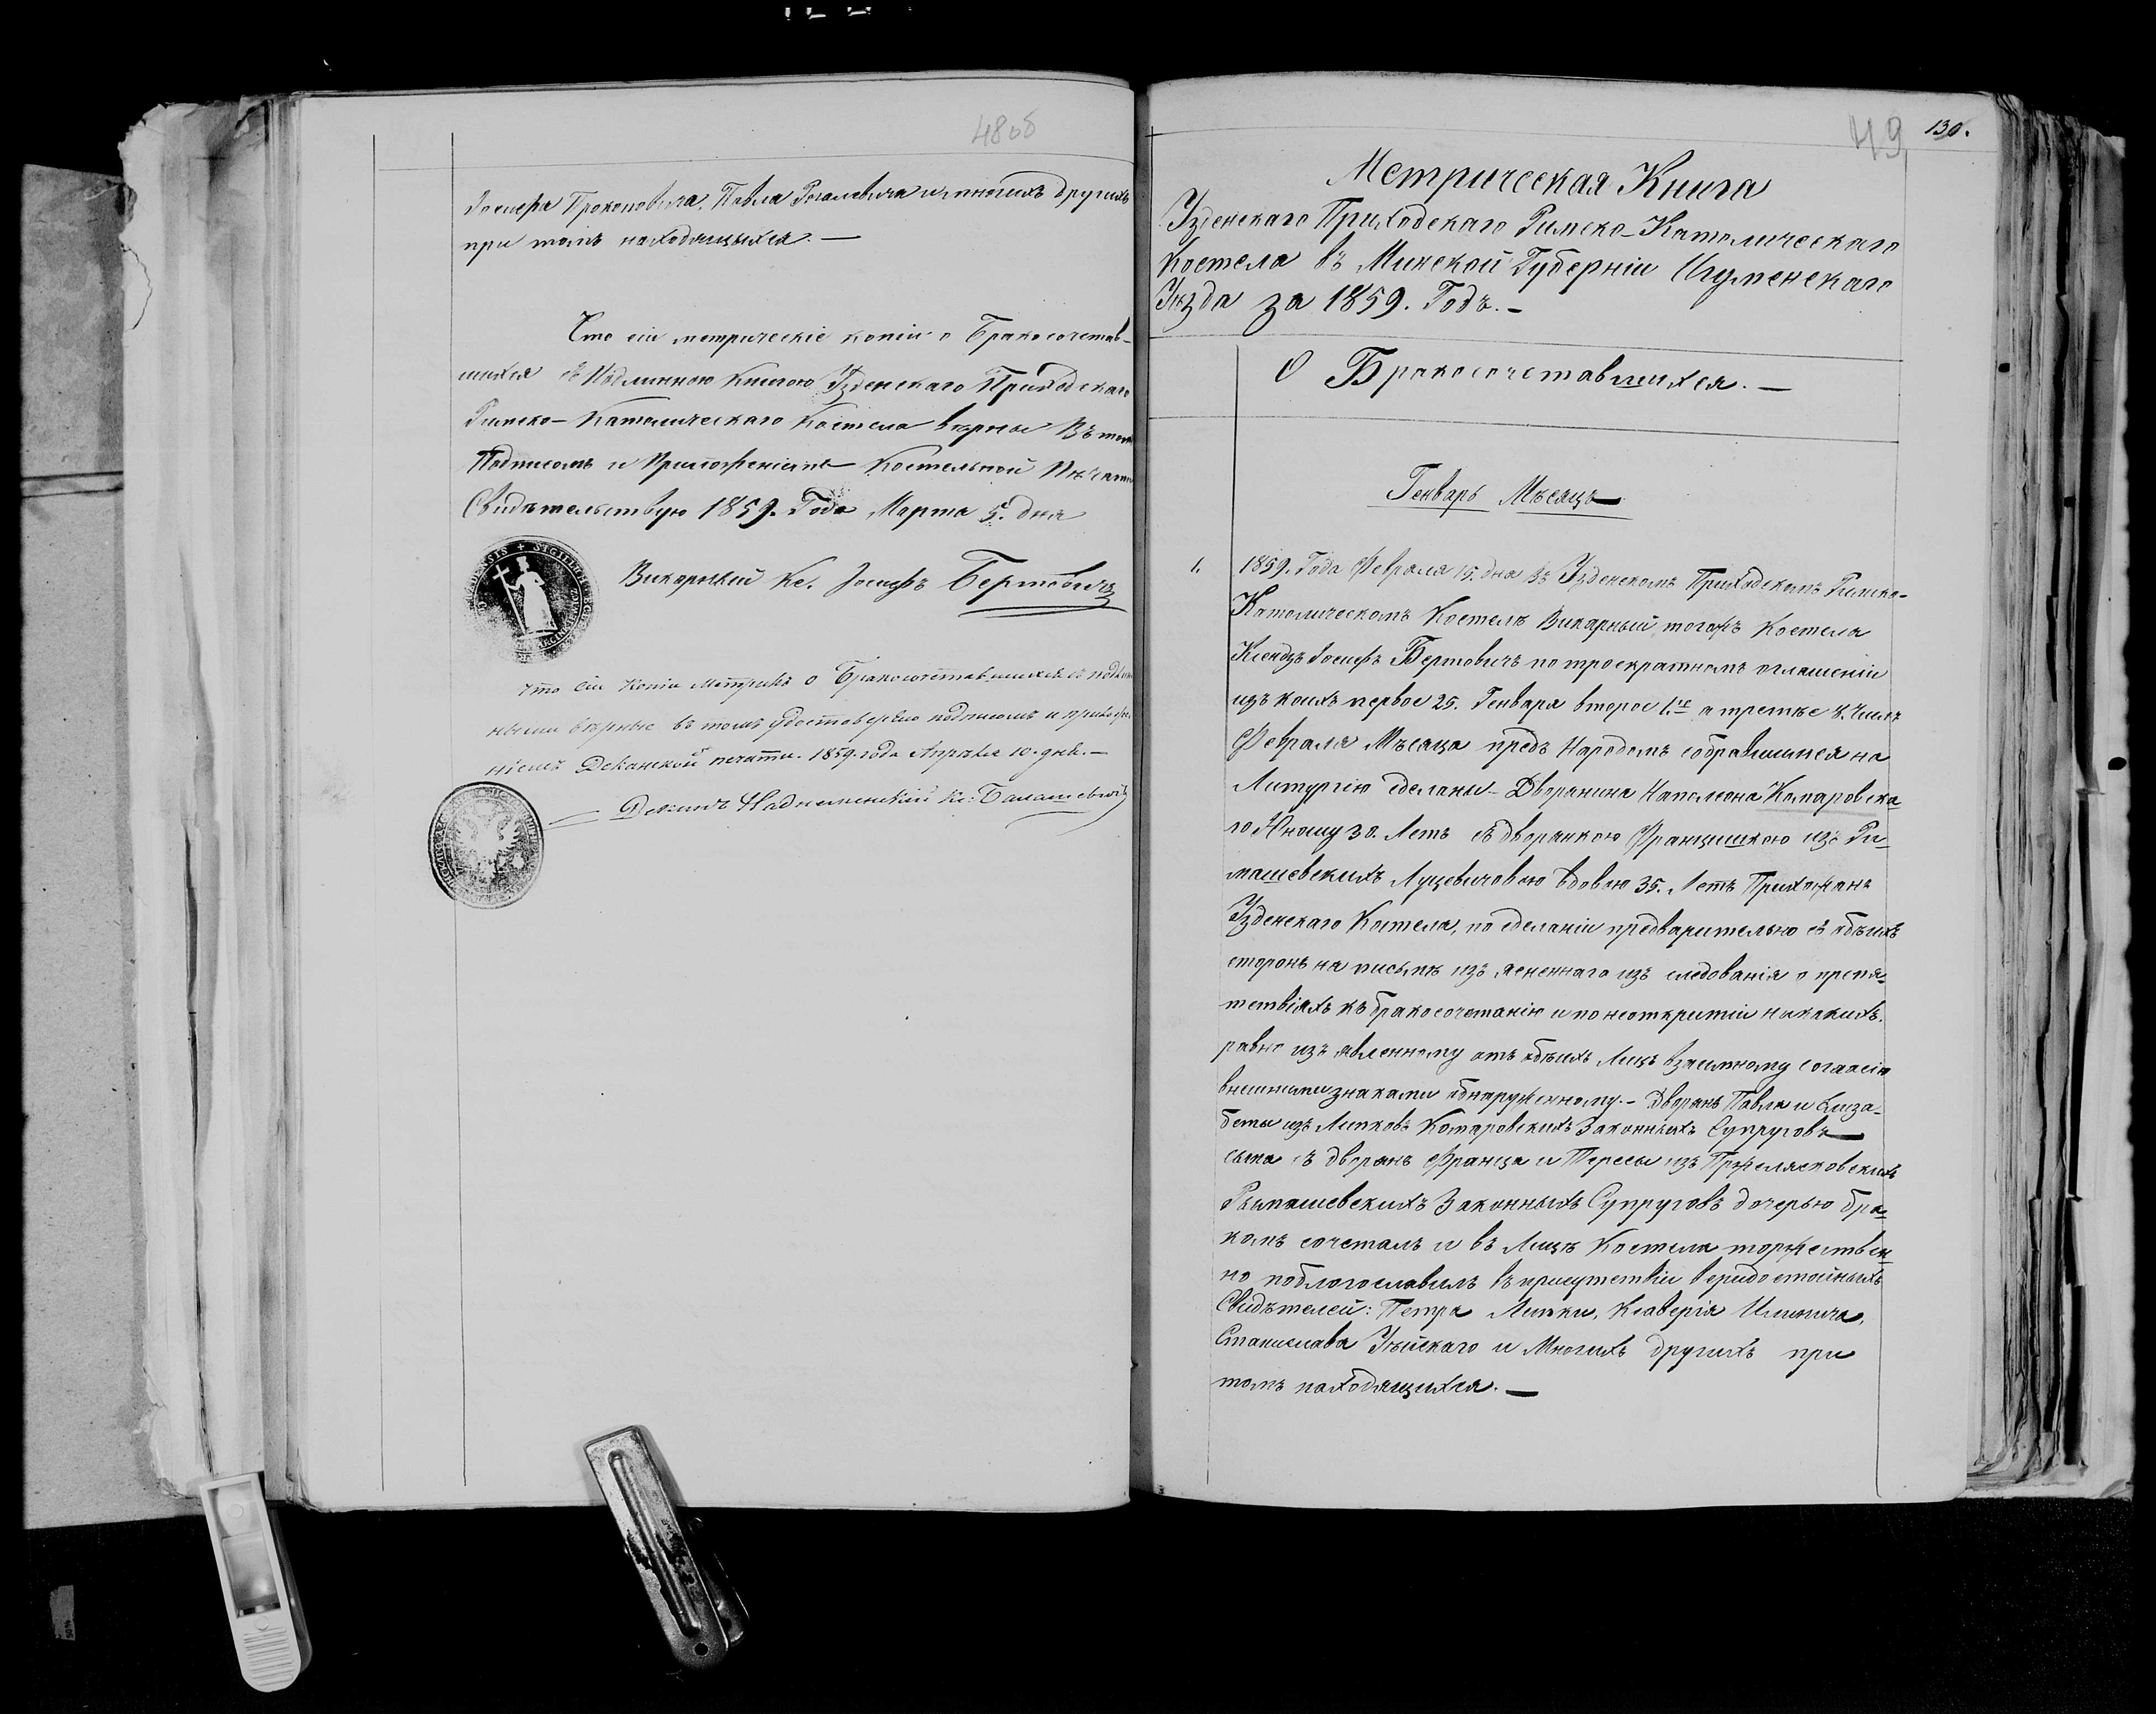 48об
Іосифа Прокоповича, Павла Рогалевича и многихъ другихъ
при томъ находящыхся. —
Что сіи метрическіе копіи о Бракосочетав-
шихся съ Подлинною Книгою Узденскаго Приходскаго
Римско-Католическаго Костела верны Въ томъ
Подписомъ и Приложеніемъ Костельной Печати
Свидѣтельствую 1859. Года Марта 5. дня
Викарный Кс. Іосифъ Бертовичъ
Что сіи Копіи Метрикъ о Бракосочетавшихся съ подлин
ными верные въ томъ удостоверяю подписомъ и приложе
ніемъ Деканской печати. 1859. года Апрѣля 10. дня. —
Деканъ Кс: Балашевичъ
49 130.
Метрическая Книга
Узденскаго Приходскаго Римско-Католическаго
Костела въ Минской Губерніи Игуменскаго
Уѣзда за 1859. Годъ. —
О Бракосочетавшихся. —
Генварь Мѣсяцъ
1. 1859. Года Февраля 15. дня въ Узденскомъ Приходскомъ Римско-
Католическомъ Костелѣ Викарный тогожъ Костела
Ксендзъ Іосифъ Бертовичъ по троекратномъ оглашеніи
изъ коихъ первое 25. Генваря второе 1.го а третье 8. Числъ
Февраля Мѣсяца предъ Народомъ собравшимся на
Литургію сделаны — Дворянина Наполеона Комаровска
го Юношу 30. Летъ съ дворянкою Францишкою изъ Ри-
машевскихъ Луцевичовою вдовою 35. Летъ Прихожанъ
Узденскаго Костела, по сделаніи предварительно съ обѣихъ
сторонъ на письмѣ изъясненнаго изъ следованія о препя-
тствіяхъ къ бракосочетанію и по неоткрытіи никакихъ.
равно изъявленному отъ обѣихъ Лицъ взаимному согласію
внешними знаками обнаруженному. — Дворянъ Павла и Елиза-
беты изъ Липковъ Комаровскихъ Законныхъ Супруговъ
сына съ дворянъ Франца и Тересы изъ Пржеласковскихъ
Рымашевскихъ Законныхъ Супруговъ дочерью бра-
комъ сочеталъ и въ Лицѣ Костела торжествен
но поблогославилъ въ присутствіи веридостойныхъ
Свидѣтелей: Петра Липки, Ксаверія
Станислава и Многихъ другихъ при
томъ находящихся. —